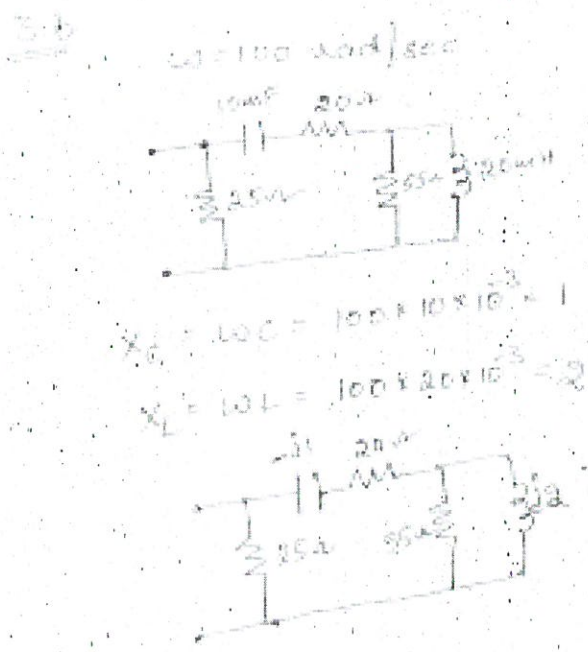 3.6
ω=100 rad/sec
10mF 20Ω
25Ω 55Ω 20mH
Xc = ωC = 100×10×10^-3 = 1
XL = ωL = 100×20×10^-3 = 2
-j1 20Ω
25Ω 55Ω j2